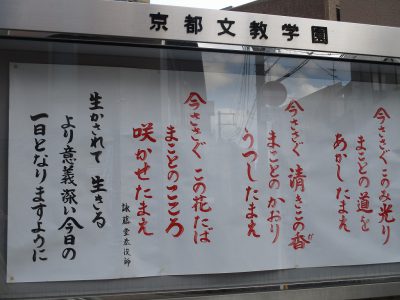 京都文教学園
今ささぐ このみ光り
まことの道を
あかし たまえ
今ささぐ 清きこの香
が
まことの かおり
うつし たまえ
今ささぐ この花たば
まことの こころ
咲かせ たまえ
生かされて 生きる
より意義深い今日の
一日となりますように